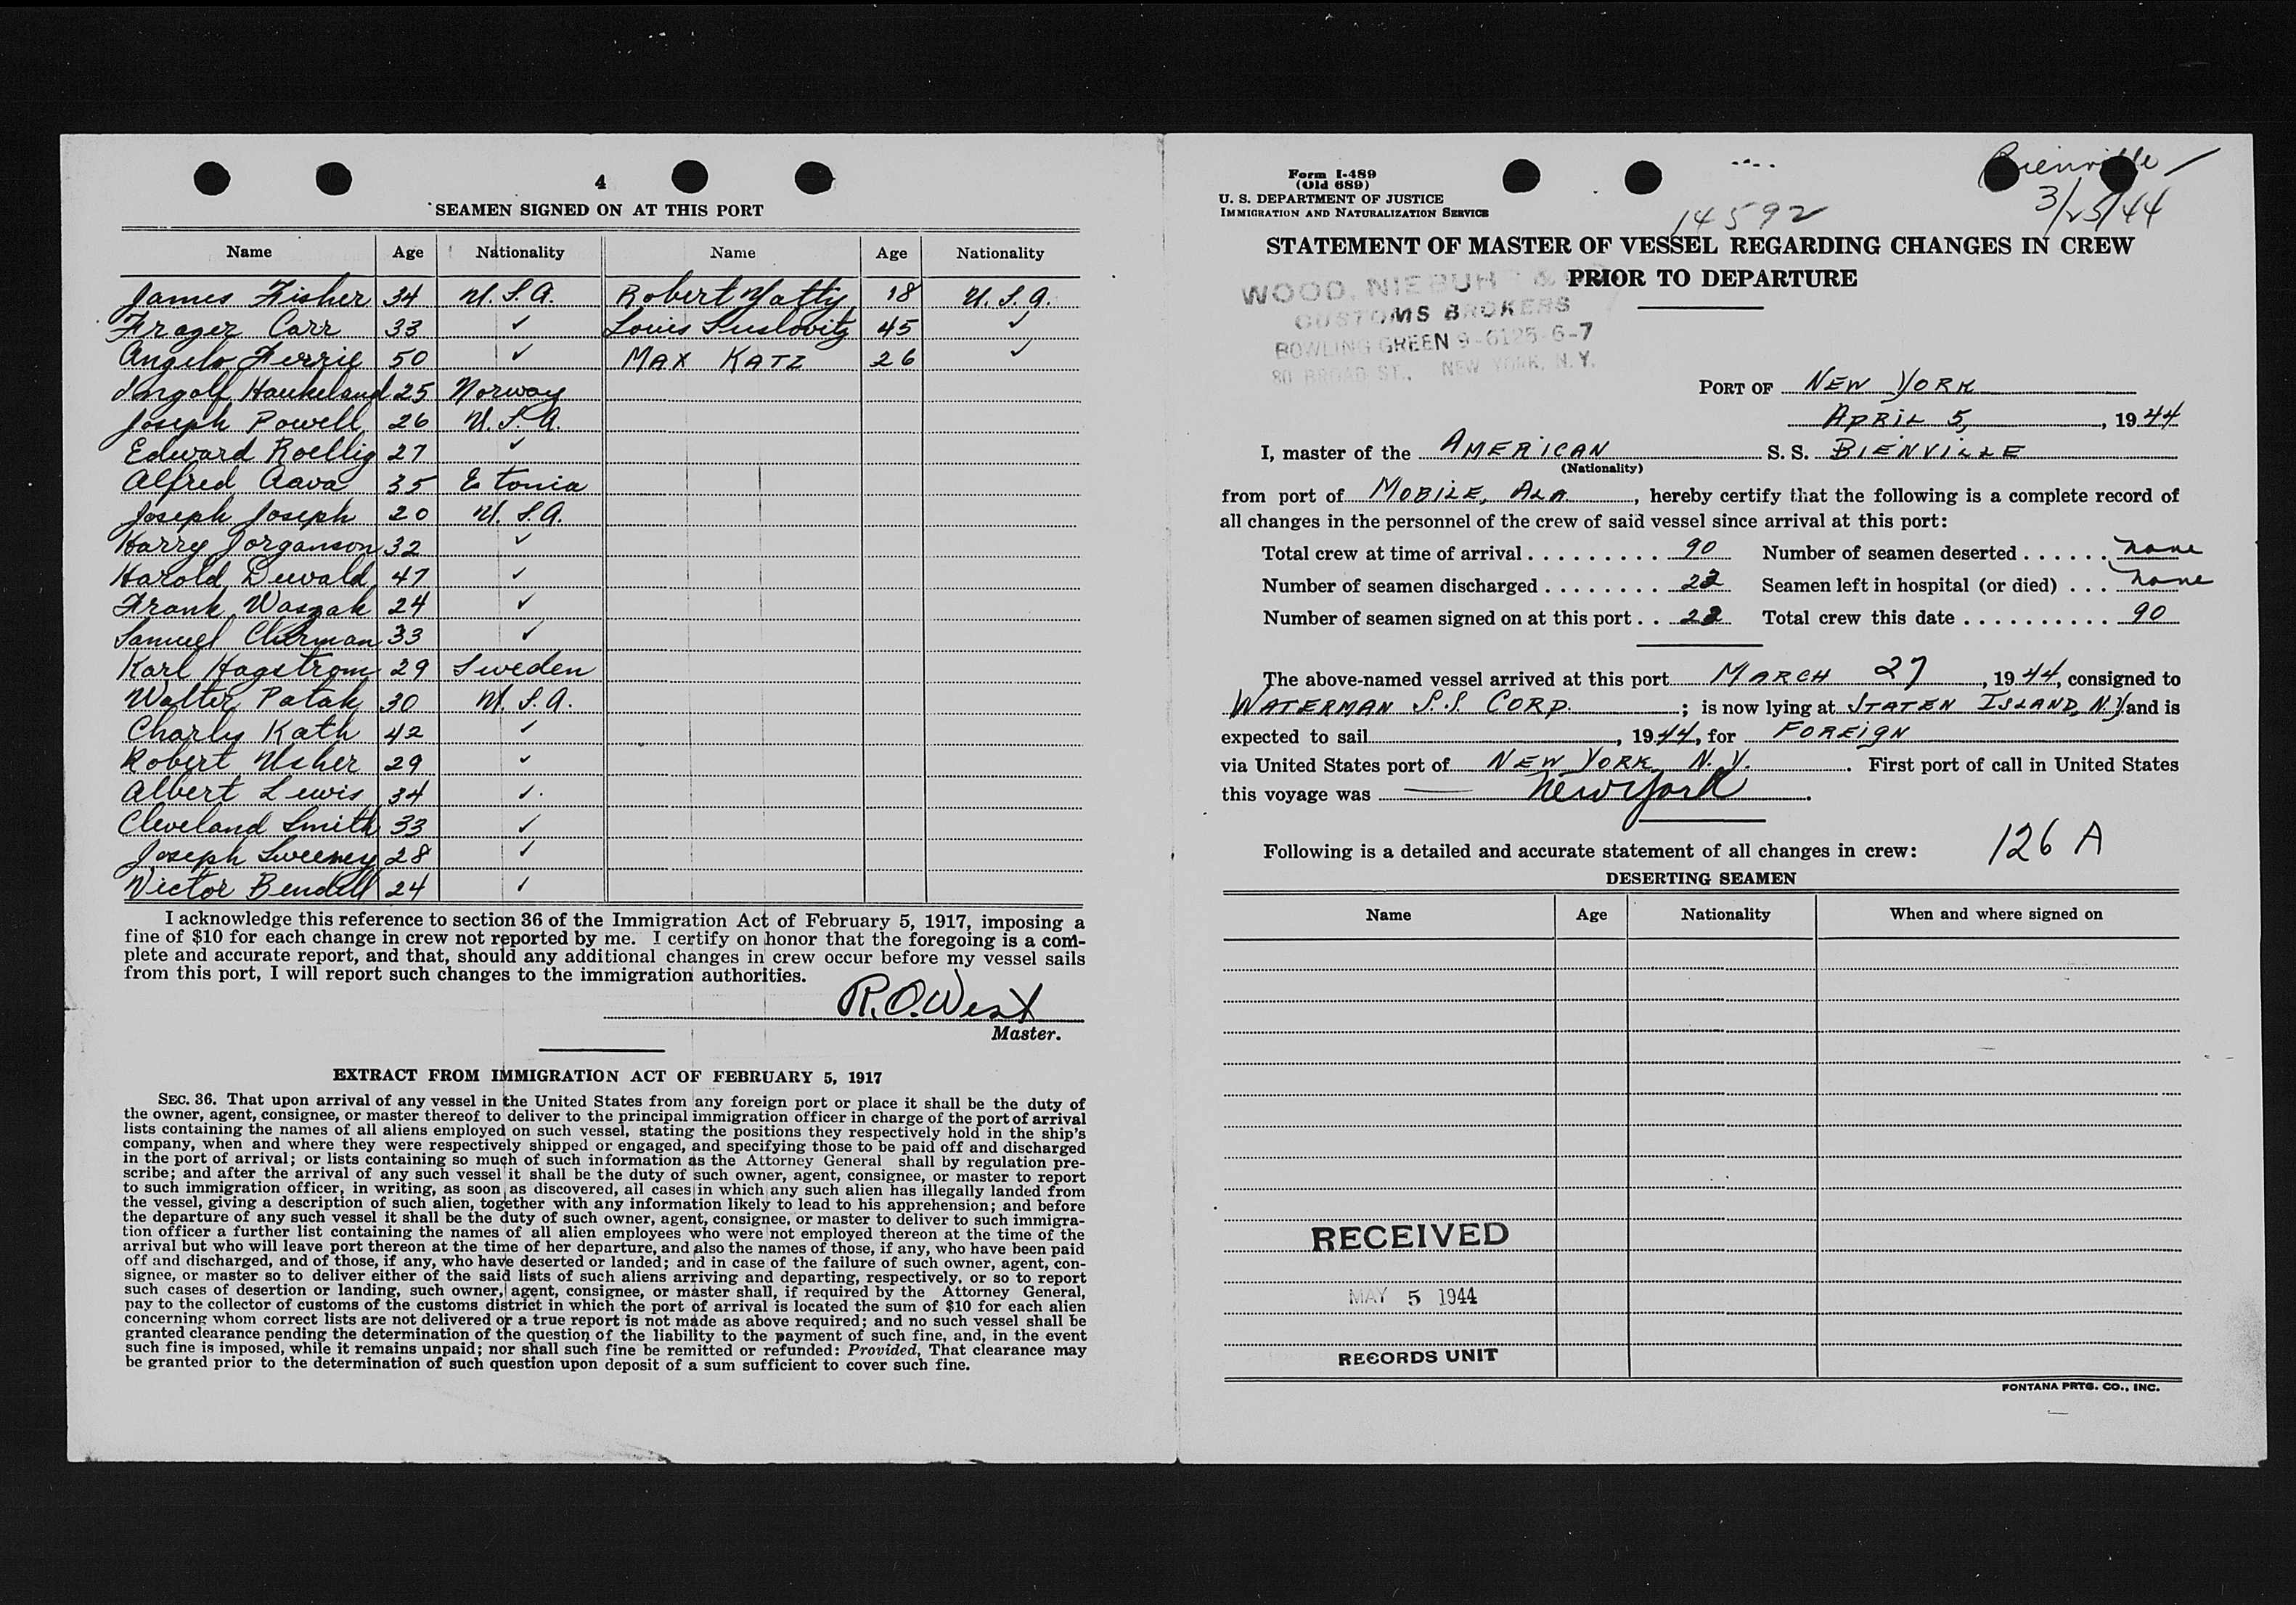 4
SEAMEN SIGNED ON AT THIS PORT
Name Age Nationality Name Age Nationality
James Fisher 34 U.S.A. Robert Yatty 18 U.S.A.
Frager Carr 33 ✓ Louis Suslovitz 45 ✓
Angelo Ferrie 50 ✓ MAX KATZ 26 ✓
Ingolf Haukeland 25 Norway
Joseph Powell 26 U.S.A.
Edward Roellig 27 ✓
Alfred Aava 35 Estonia
Joseph Joseph 20 U.S.A.
Harry Jorganson 32 ✓
Harold Dewald 47 ✓
Frank Waszak 24 ✓
Samuel 33 ✓
Karl Hagstrom 29 Sweden
Walter Patak 30 U.S.A.
Charly Kath 42 ✓
Robert Usher 29 ✓
Albert Lewis 34 ✓
Cleveland Smith 33 ✓
Joseph Sweeney 28 ✓
Victor Bendell 24 ✓
I acknowledge this reference to section 36 of the Immigration Act of February 5, 1917, imposing a
fine of $10 for each change in crew not reported by me. I certify on honor that the foregoing is a com-
plete and accurate report, and that, should any additional changes in crew occur before my vessel sails
from this port, I will report such changes to the immigration authorities.
R.O. West
Master.
EXTRACT FROM IMMIGRATION ACT OF FEBRUARY 5, 1917
SEC. 36. That upon arrival of any vessel in the United States from any foreign port or place it shall be the duty of
the owner, agent, consignee, or master thereof to deliver to the principal immigration officer in charge of the port of arrival
lists containing the names of all aliens employed on such vessel, stating the positions they respectively hold in the ship's
company, when and where they were respectively shipped or engaged, and specifying those to be paid off and discharged
in the port of arrival; or lists containing so much of such information as the Attorney General shall by regulation pre-
scribe; and after the arrival of any such vessel it shall be the duty of such owner, agent, consignee, or master to report
to such immigration officer, in writing, as soon as discovered, all cases in which any such alien has illegally landed from
the vessel, giving a description of such alien, together with any information likely to lead to his apprehension; and before
the departure of any such vessel it shall be the duty of such owner, agent, consignee, or master to deliver to such immigra-
tion officer a further list containing the names of all alien employees who were not employed thereon at the time of the
arrival but who will leave port thereon at the time of her departure, and also the names of those, if any, who have been paid
off and discharged, and of those, if any, who have deserted or landed; and in case of the failure of such owner, agent, con-
signee, or master so to deliver either of the said lists of such aliens arriving and departing, respectively, or so to report
such cases of desertion or landing, such owner, agent, consignee, or master shall, if required by the Attorney General,
pay to the collector of customs of the customs district in which the port of arrival is located the sum of $10 for each alien
concerning whom correct lists are not delivered or a true report is not made as above required; and no such vessel shall be
granted clearance pending the determination of the question of the liability to the payment of such fine, and, in the event
such fine is imposed, while it remains unpaid; nor shall such fine be remitted or refunded: Provided, That clearance may
be granted prior to the determination of such question upon deposit of a sum sufficient to cover such fine.
Form I-489
(Old 689)
U. S. DEPARTMENT OF JUSTICE
IMMIGRATION AND NATURALIZATION SERVICE
Bienville
3/25/44
14592
STATEMENT OF MASTER OF VESSEL REGARDING CHANGES IN CREW
PRIOR TO DEPARTURE
WOOD, NIEBUHR & CO
CUSTOMS BROKERS
BOWLING GREEN 9-6125-6-7
80 BROAD ST., NEW YORK, N.Y.
PORT OF NEW YORK
APRIL 5, 1944
I, master of the AMERICAN S. S. BIENVILLE
(Nationality)
from port of MOBILE, ALA, hereby certify that the following is a complete record of
all changes in the personnel of the crew of said vessel since arrival at this port:
Total crew at time of arrival . . . . . . . . . 90 Number of seamen deserted . . . . . . none
Number of seamen discharged . . . . . . . . 23 Seamen left in hospital (or died) . . . none
Number of seamen signed on at this port . . 23 Total crew this date . . . . . . . . . . 90
The above-named vessel arrived at this port MARCH 27, 1944, consigned to
WATERMAN S.S. CORP. ; is now lying at STATEN ISLAND, N.Y and is
expected to sail , 1944, for FOREIGN
via United States port of NEW YORK, N.Y. First port of call in United States
this voyage was New York.
Following is a detailed and accurate statement of all changes in crew: 126 A
DESERTING SEAMEN
Name Age Nationality When and where signed on
RECEIVED
MAY 5 1944
RECORDS UNIT
FONTANA PRTG. CO., INC.